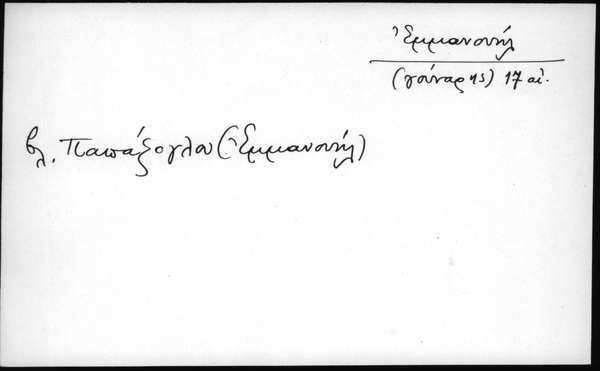 Ἐμμανουήλ
(γούναρης) 17 αἰ.
βλ. Παπάζογλου (Ἐμμανουήλ)